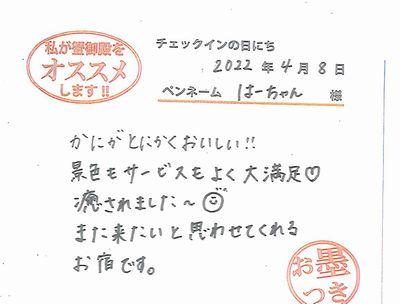 私が蟹御殿を
オススメ
します!!
チェックインの日にち
2022年4月8日
ペンネーム はーちゃん 様
かにがとにかくおいしい!!
景色もサービスもよく大満足♡
癒されました〜
また来たいと思わせてくれる
お宿です。
お墨
つき